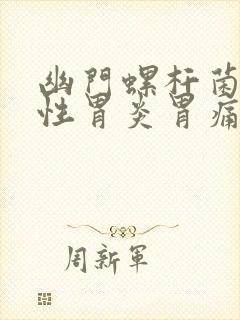 幽門螺杆菌
性胃炎胃痛
周新軍